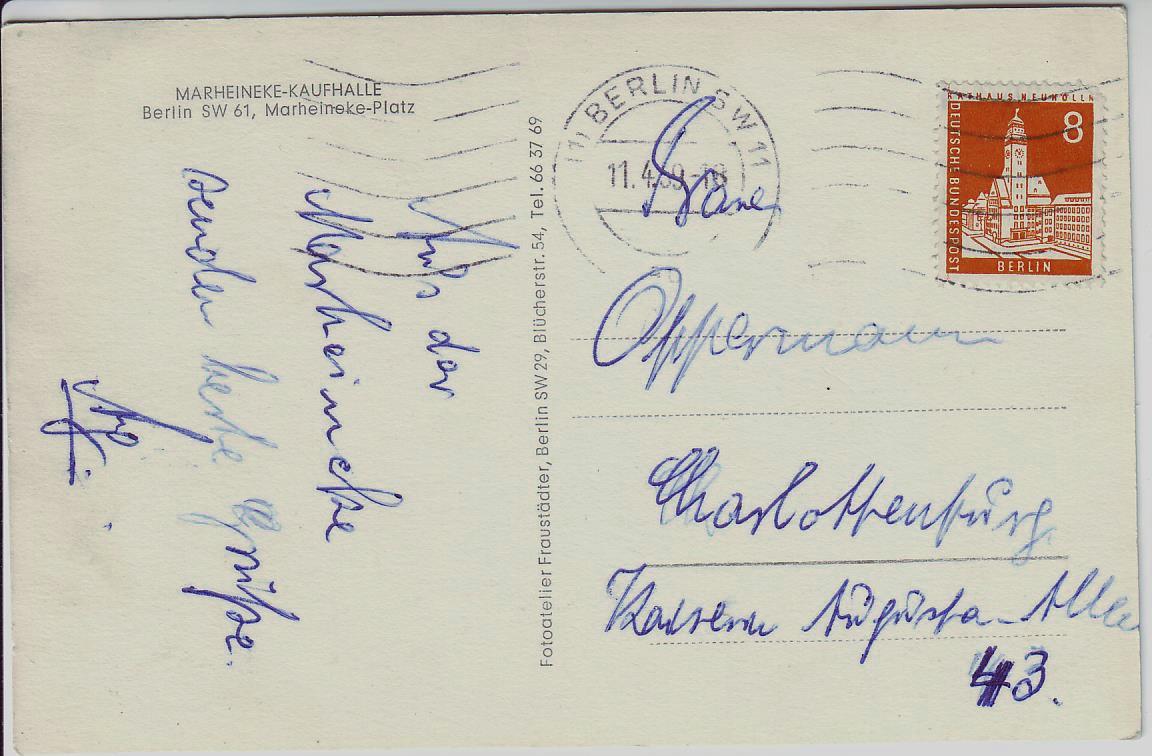 MARHEINEKE-KAUFHALLE
Berlin SW 61, Marheineke-Platz
Aus der
Marheineke
senden beste Grüße.
Fotoatelier Fraustädter, Berlin SW 29, Blücherstr. 54, Tel. 66 37 69
(1) BERLIN SW 11
11.4.59-18
RATHAUS NEUKÖLLN
DEUTSCHE BUNDESPOST
8
BERLIN
Oppermann
Charlottenburg
Kaiserin Augusta-Allee
43.